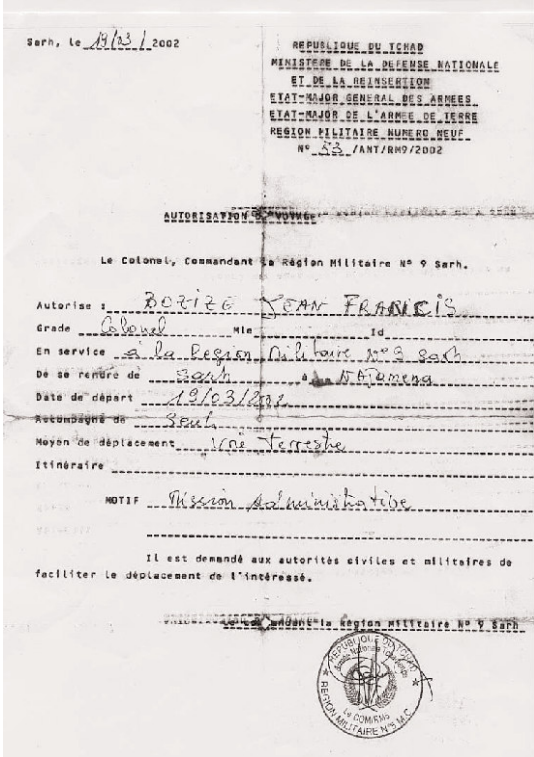 Sarh, le 19/03/2002
REPUBLIQUE DU TCHAD
MINISTERE DE LA DEFENSE NATIONALE
ET DE LA REINSERTION
ETAT-MAJOR GENERAL DES ARMEES
ETAT-MAJOR DE L'ARMEE DE TERRE
REGION MILITAIRE NUMERO NEUF
N° 53 /ANT/RM9/2002
AUTORISATION DE VOYAGE
Le Colonel, Commandant la Région Militaire N° 9 Sarh.
Autorise : BOZIZE JEAN FRANCIS
Grade Colonel Mle Id
En service à la Region Militaire N°9 Sarh
De se rendre de Sarh à NDJAMENA
Date de départ 19/03/2002
Accompagné de Seul
Moyen de déplacement Voie terrestre
Itinéraire
MOTIF Mission Administrative
Il est demandé aux autorités civiles et militaires de
faciliter le déplacement de l'intéressé.
Le Commandant la Région Militaire N° 9 Sarh
REPUBLIQUE DU TCHAD
Armée Nationale Tchadienne
Le COM/RM9
REGION MILITAIRE N°9 M.C